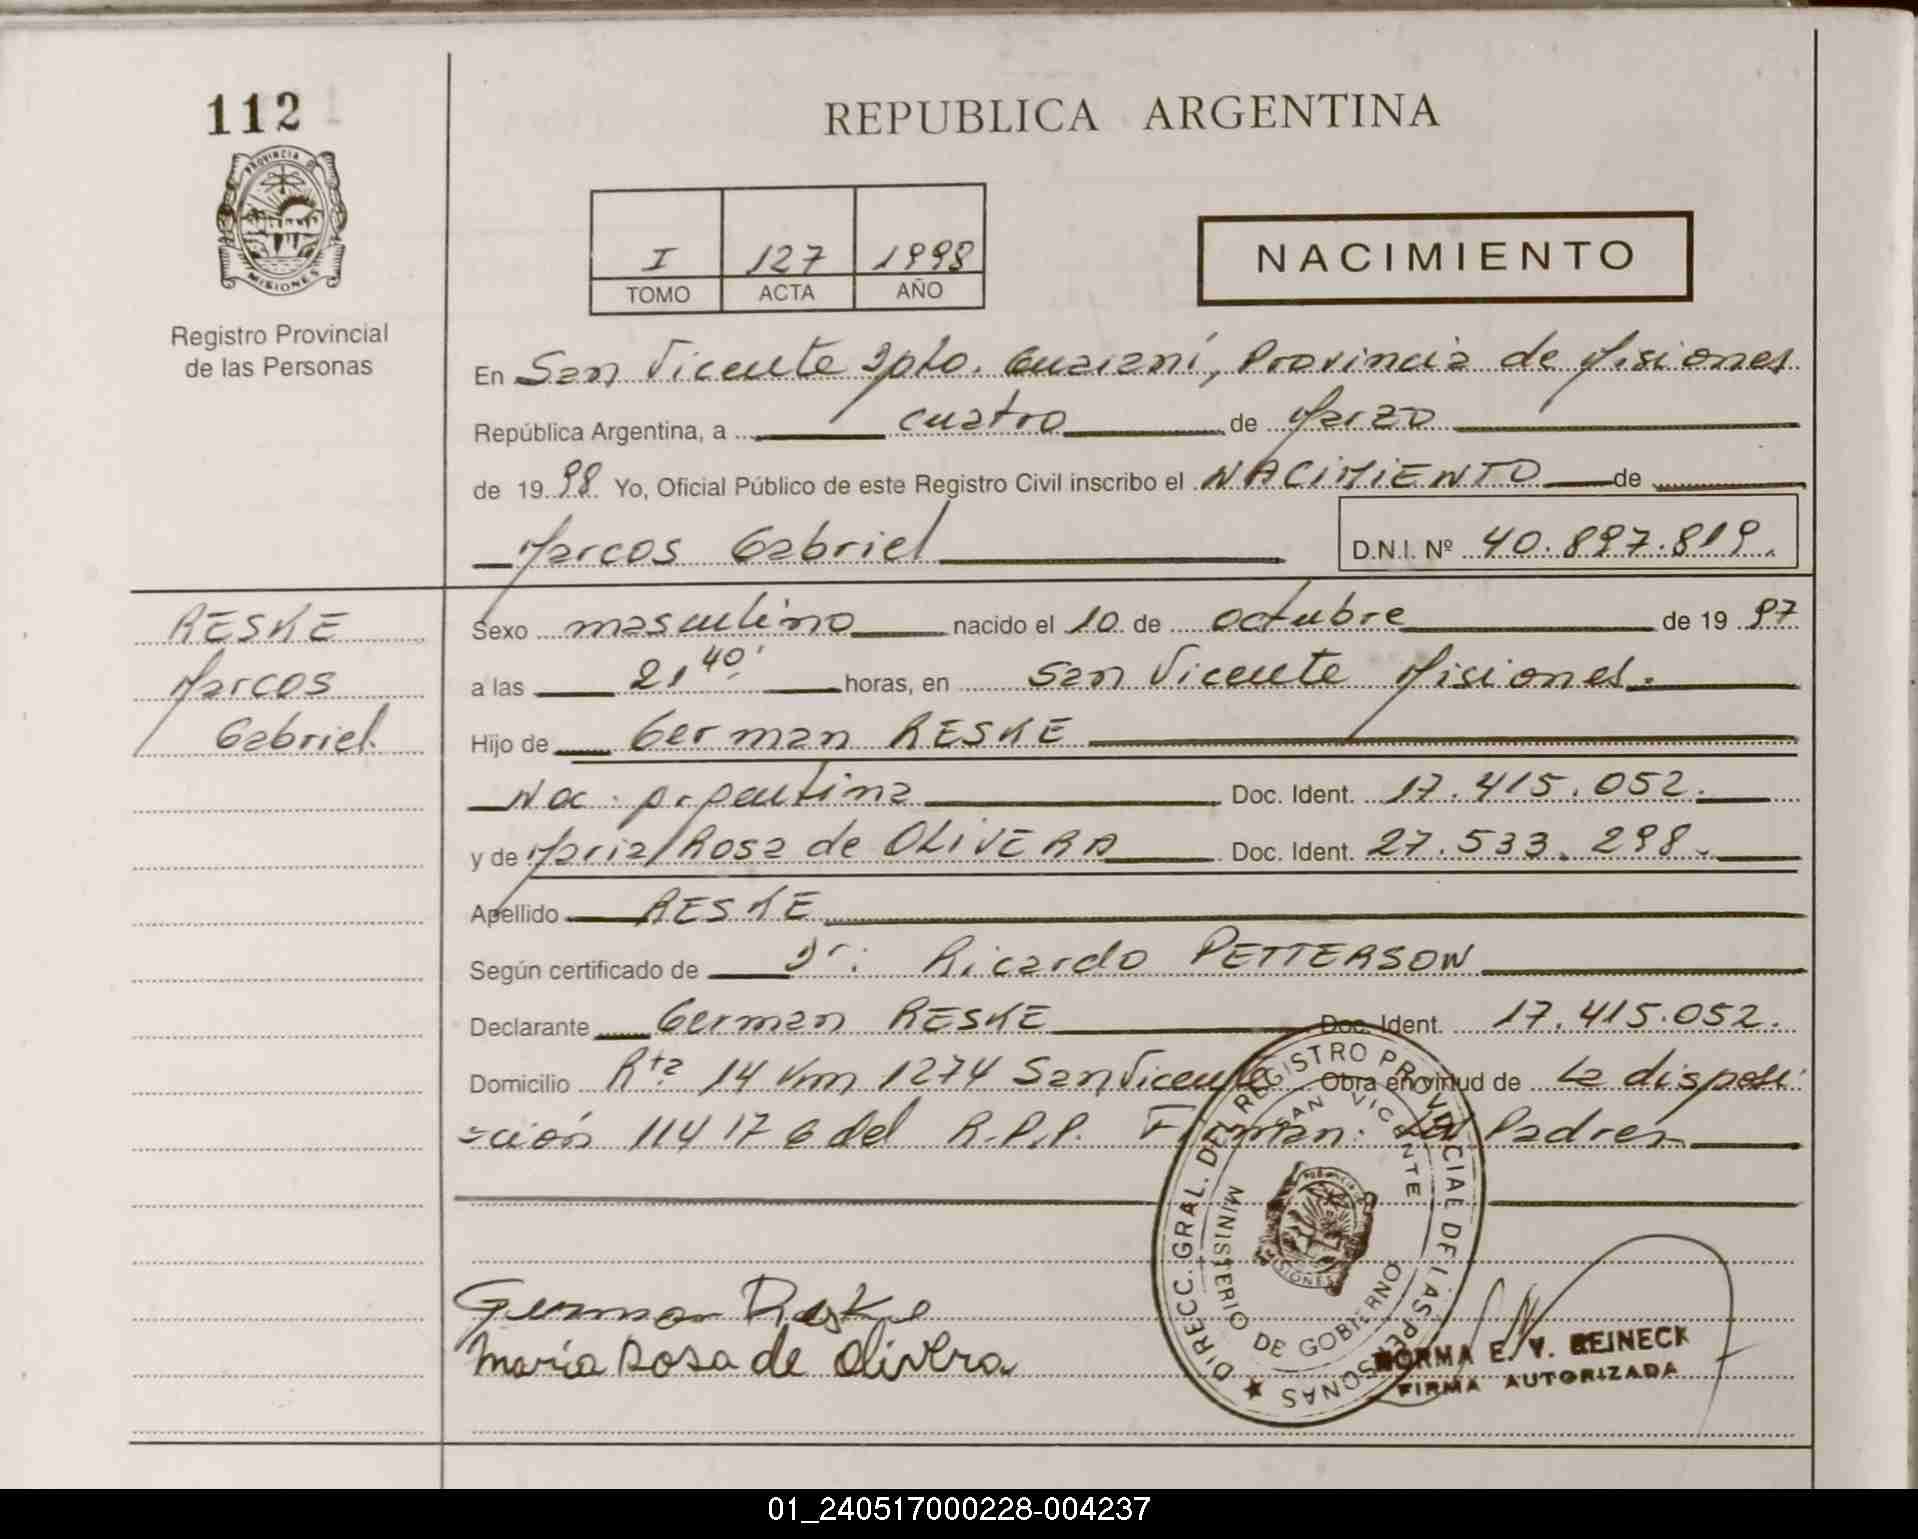 112
REPUBLICA ARGENTINA
PROVINCIA DE
MISIONES
Registro Provincial
de las Personas
I 127 1998
TOMO ACTA AÑO
NACIMIENTO
En San Vicente Dpto. Guaraní, Provincia de Misiones
República Argentina, a cuatro de Marzo
de 1998 Yo, Oficial Público de este Registro Civil inscribo el NACIMIENTO de
Marcos Gabriel D.N.I. Nº 40.897.819.
RESKE
Marcos
Gabriel.
Sexo masculino nacido el 10 de octubre de 1997
a las 21 40' horas, en San Vicente Misiones.
Hijo de German RESKE
Nac. argentina Doc. Ident. 17.415.052.
y de Maria Rosa de OLIVERA Doc. Ident. 27.533.298.
Apellido RESKE
Según certificado de Dr: Ricardo PETTERSON
Declarante German RESKE Doc. Ident. 17.415.052.
Domicilio Rta 14 Km 1274 San Vicente Obra en virtud de La disposi
=ción 114 17 6 del R.P.P. Firman: Los Padres
German Reske
María Rosa de Olivera
DIRECC. GRAL. DEL REGISTRO PROVINCIAL DE LAS PERSONAS
SAN VICENTE
MINISTERIO DE GOBIERNO
MISIONES
NORMA E. V. REINECK
FIRMA AUTORIZADA
01_240517000228-004237